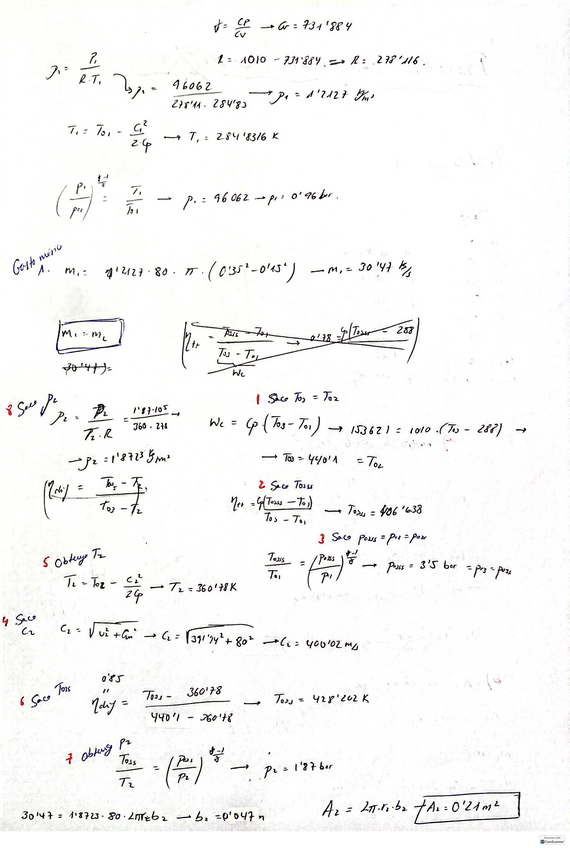 γ = Cp/Cv → Cv = 731'884
R = 1010 - 731'884 ⇒ R = 278'116.
ρ₁ = P₁/(R·T₁) ↘ ρ₁ = 96062/(278'11 · 284'83) → ρ₁ = 1'2127 kg/m³
T₁ = T₀₁ - C₁²/(2·Cp) → T₁ = 284'8316 K
(P₁/P₀₁)^((γ-1)/γ) = T₁/T₀₁ → p₁ = 96062 → p₁ = 0'96 bar.
Gasto másico
1. m₁ = 1'2127 · 80 · π · (0'35² - 0'15²) → m₁ = 30'47 kg/s
m₁ = m₂
30'47 =
(ηtt = (T03ss - T01)/(T03 - T01) → 0'78 = Cp(T03ss - 288)
Wc
8 Saco ρ₂
ρ₂ = P₂/(T₂·R) = 1'87·10⁵/(360·278) →
→ ρ₂ = 1'8723 kg/m³
1 Saco T03 = T02
Wc = Cp (T03 - T01) → 153621 = 1010 · (T03 - 288) →
→ T03 = 440'1 = T02
2 Saco T03ss
ηtt = Cp(T03ss - T01)/(T03 - T01) → T03ss = 406'638
3 Saco
T03ss/T01 = (p03ss/p1)^((γ-1)/γ) → p03ss = 3'5 bar = p03 =
5 Obtengo T₂
T₂ = T02 - C₂²/(2Cp) → T₂ = 360'78 K
4 Saco C₂
C₂ = → C₂ = √(391'94² + 80²) → C₂ = 400'02 m/s
6 Saco
0'85
"
= (T03s - 360'78)/(440'1 - 360'78) → T03s = 428'202 K
7 Obtengo p₂
T03s/T₂ = (p03s/p₂)^((γ-1)/γ) → p₂ = 1'87 bar
30'47 = 1'8723 · 80 · 2πr₂b₂ → b₂ = 0'047 m
A₂ = 2π·r₂·b₂ → A₂ = 0'21 m²
CamScanner